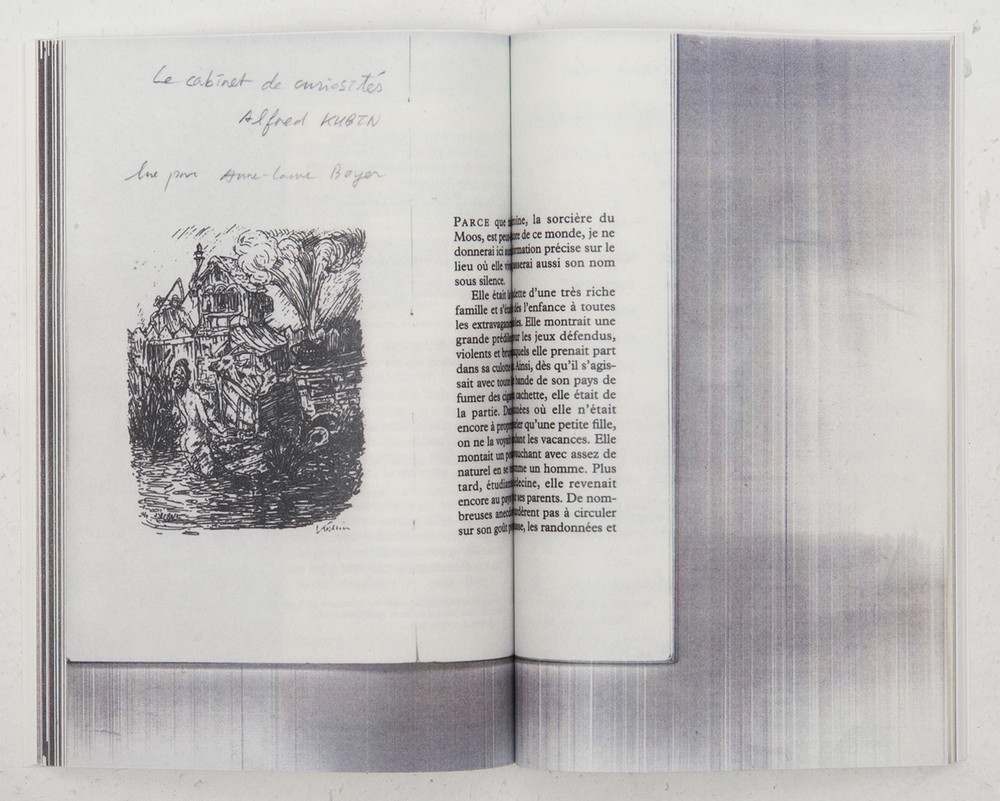 Le cabinet de curiosités
Alfred KUBIN
lue par Anne-Laure Boyer
PARCE que mine, la sorcière du
Moos, est peut- de ce monde, je ne
donnerai ici formation précise sur le
lieu où elle vi passerai aussi son nom
sous silence.
Elle était d'une très riche
famille et s'était dès l'enfance à toutes
les extravagances. Elle montrait une
grande prédil les jeux défendus,
violents et bru quels elle prenait part
dans sa culotte Ainsi, dès qu'il s'agis-
sait avec toute bande de son pays de
fumer des cig cachette, elle était de
la partie. Des nées où elle n'était
encore à prop qu'une petite fille,
on ne la voyait les vacances. Elle
montait un p uchant avec assez de
naturel en se un homme. Plus
tard, étudiant médecine, elle revenait
encore au pays ses parents. De nom-
breuses anecd dèrent pas à circuler
sur son goût p , les randonnées et